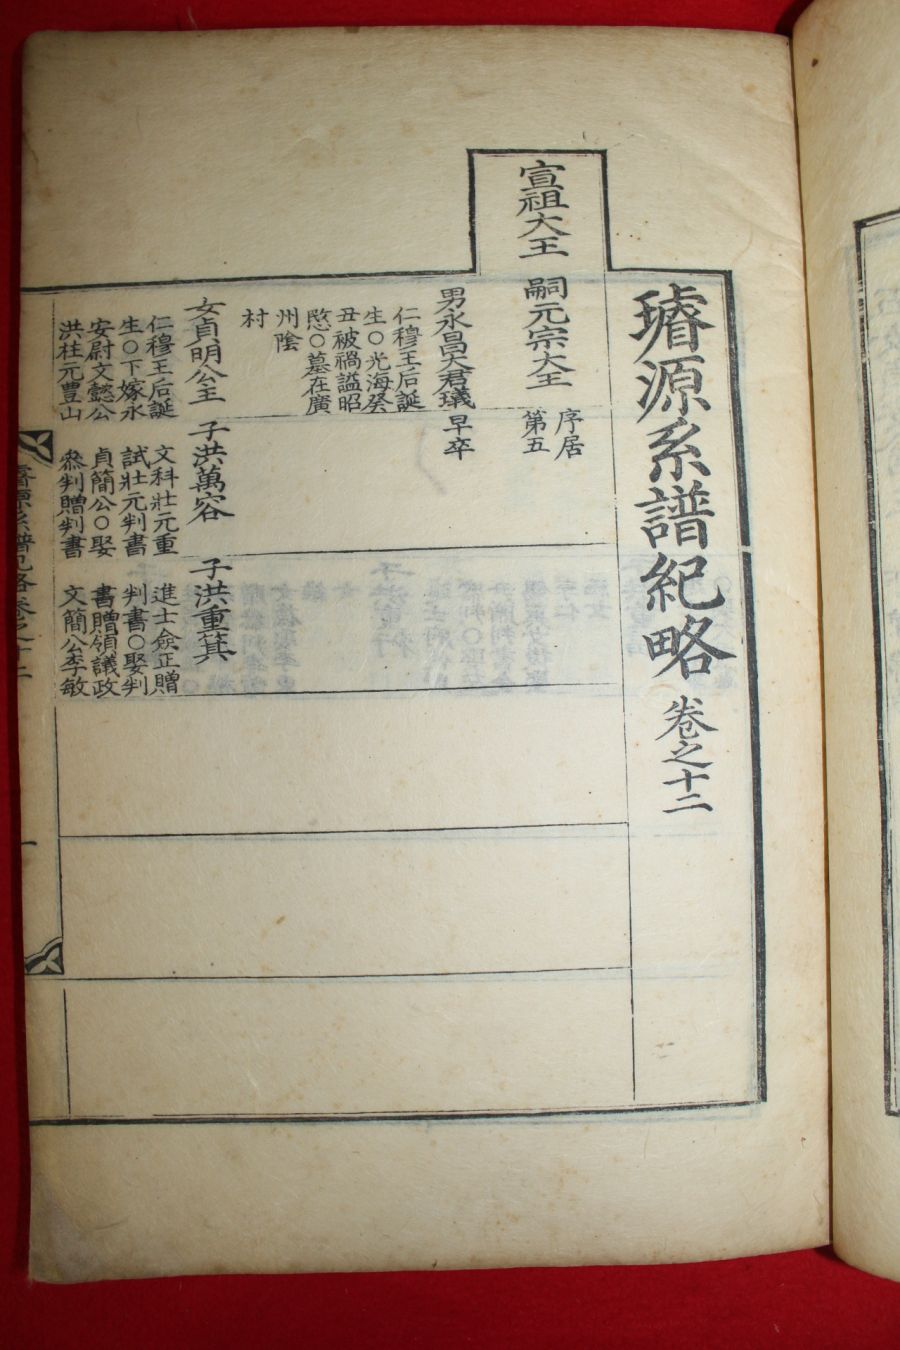 璿源系譜紀略 卷之十二
宣祖大王
嗣元宗大王
序居
第五
男永昌大君㼁
早卒
仁穆王后誕
生○光海癸
丑被禍謚昭
愍○墓在廣
州陰
村
女貞明公主
仁穆王后誕
生○下嫁永
安尉文懿公
洪柱元豊山
子洪萬容
文科壯元重
試壯元判書
貞簡公○娶
叅判贈判書
子洪重箕
進士僉正贈
判書○娶判
書贈領議政
文簡公李敏
璿源系譜紀略卷之十二
一